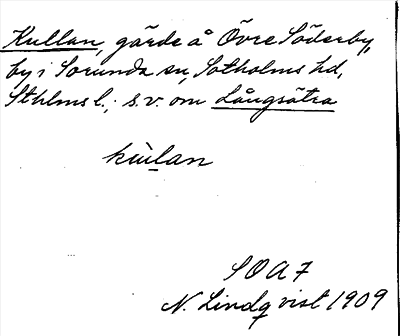 Kullan, gärde å Övre Söderby,
by i Sorunda sn, Sotholms hd,
Sthlms l.; s.v. om Långsätra
kùlan
SOAF
N. Lindqvist 1909